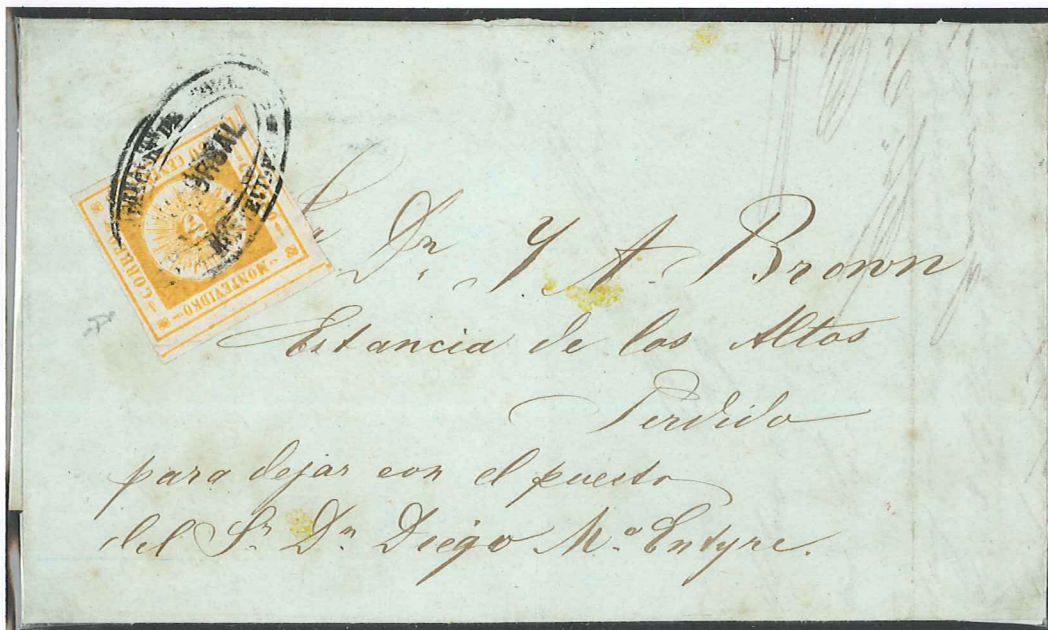 CORREO
60 CENT
MONTEVIDEO
Sr. Dn. Y A. Brown
Estancia de los Altos
Perdido
para dejar con el puesto
del Sr. Dn. Diego Mc. Entyre.